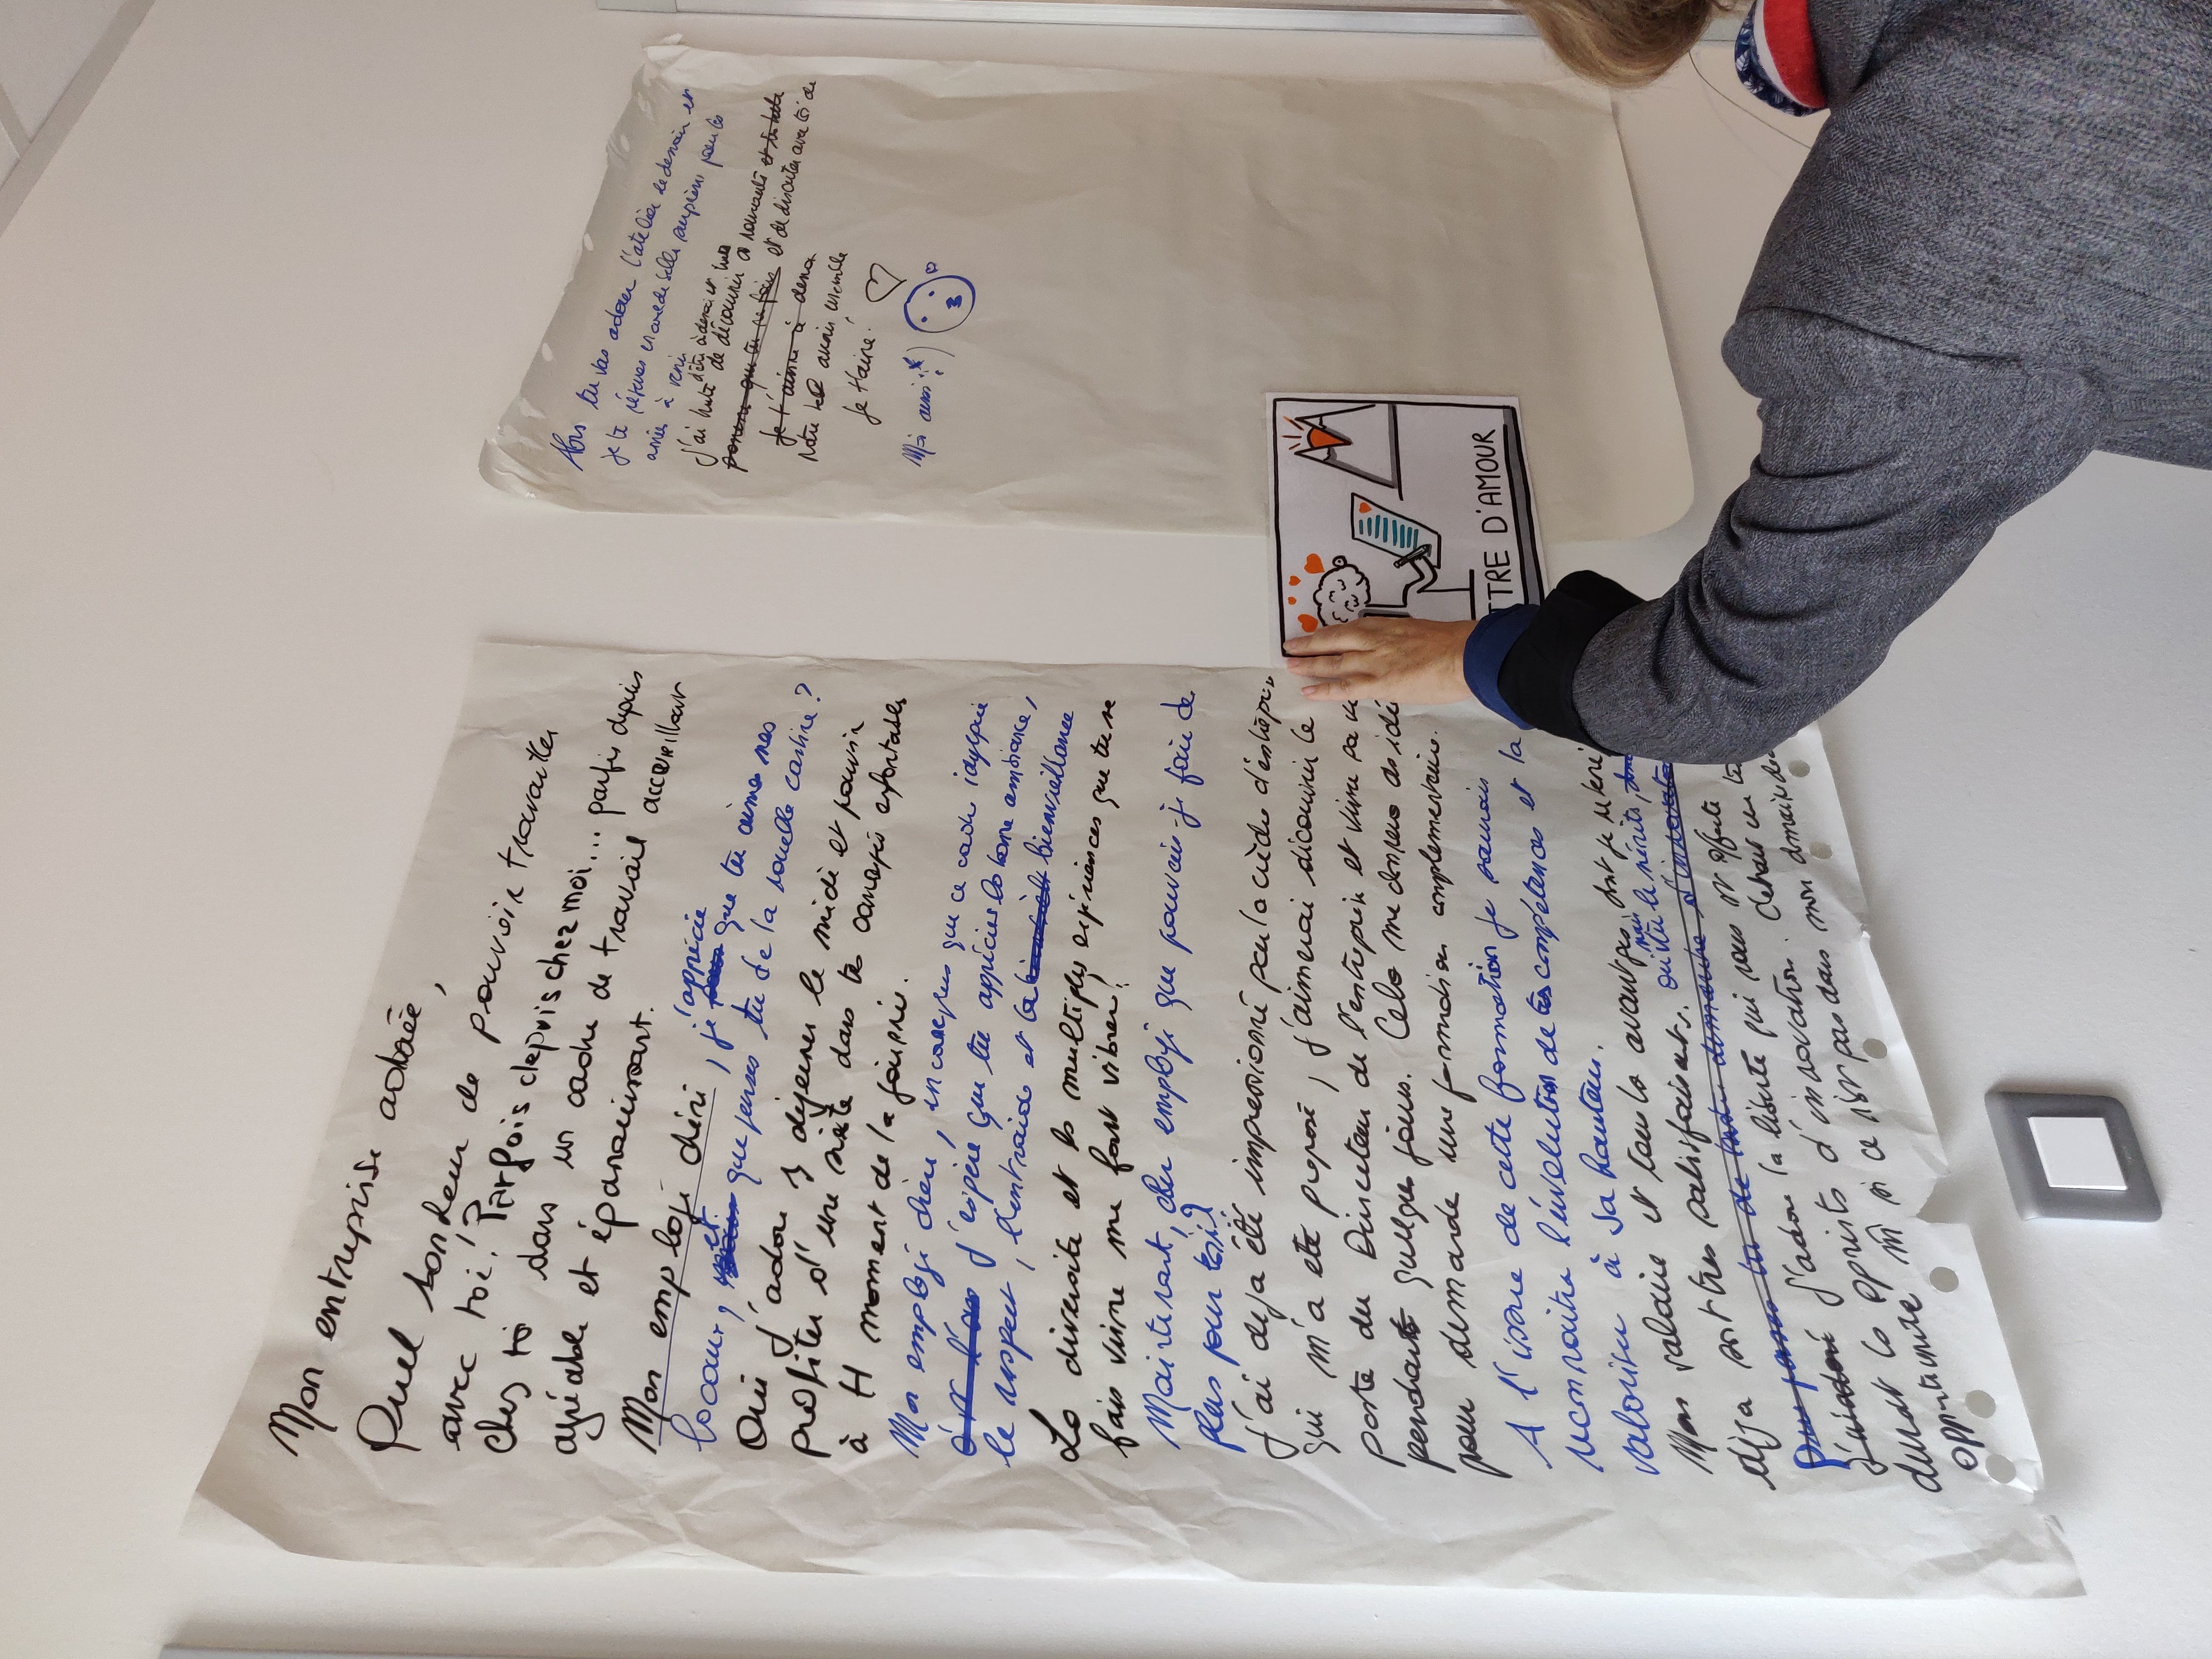 Mon entreprise adorée,
Quel bonheur de pouvoir travailler
avec toi! Parfois depuis chez moi... parfois depuis
chez toi dans un cadre de travail accueillant
agréable et épanouissant.
Mon employé chéri, je l'apprécie que tu aimes nos
locaux, et que penses tu de la nouvelle cantine?
Oui j'adore y déjeuner le midi et pouvoir
profiter d'une sieste dans tes canapés confortables
à tt moment de la journée.
Mon employé chéri, encore plus que ce cadre idyllique
j'espère que tu apprécies la bonne ambiance,
le respect, l'entraide et la bienveillance
La diversité et les multiples expériences que tu me
fais vivre me font vibrer!
Maintenant, cher employé que pouvais-je faire de
plus pour toi?
J'ai deja été impressionné par la crèche d'entreprise
qui m'a ete proposé, j'aimerai découvrir le
poste du Directeur de l'entreprise et vivre sa vie
pendant quelques jours. Cela me donnera des idé
pour demande une formation complementaire.
A l'issue de cette formation je saurais
reconnaitre l'évolution de tes compétences et la
valoriser à sa hauteur.
Mon salaire et tous les avantages, dont je
déja sont tres satisfaisants. oui mais tu le mérites,
Que penses tu de demarche d'innovation
J'adore la liberté qui nous est offerte
durant les sprints d'innovation. C'etait une
opportunité m̂ si ce n'est pas dans mon domaine de
Alors tu vas adorer l'atelier de demain et
je te réserve encore de belles surprises pour les
années à venir
J'ai hate d'être à demain et
de découvrir nouveautés
et de discuter avec toi de
Je t'aime à demain
notre bel avenir ensemble
Je t'aime!
Moi aussi :)
LETTRE D'AMOUR